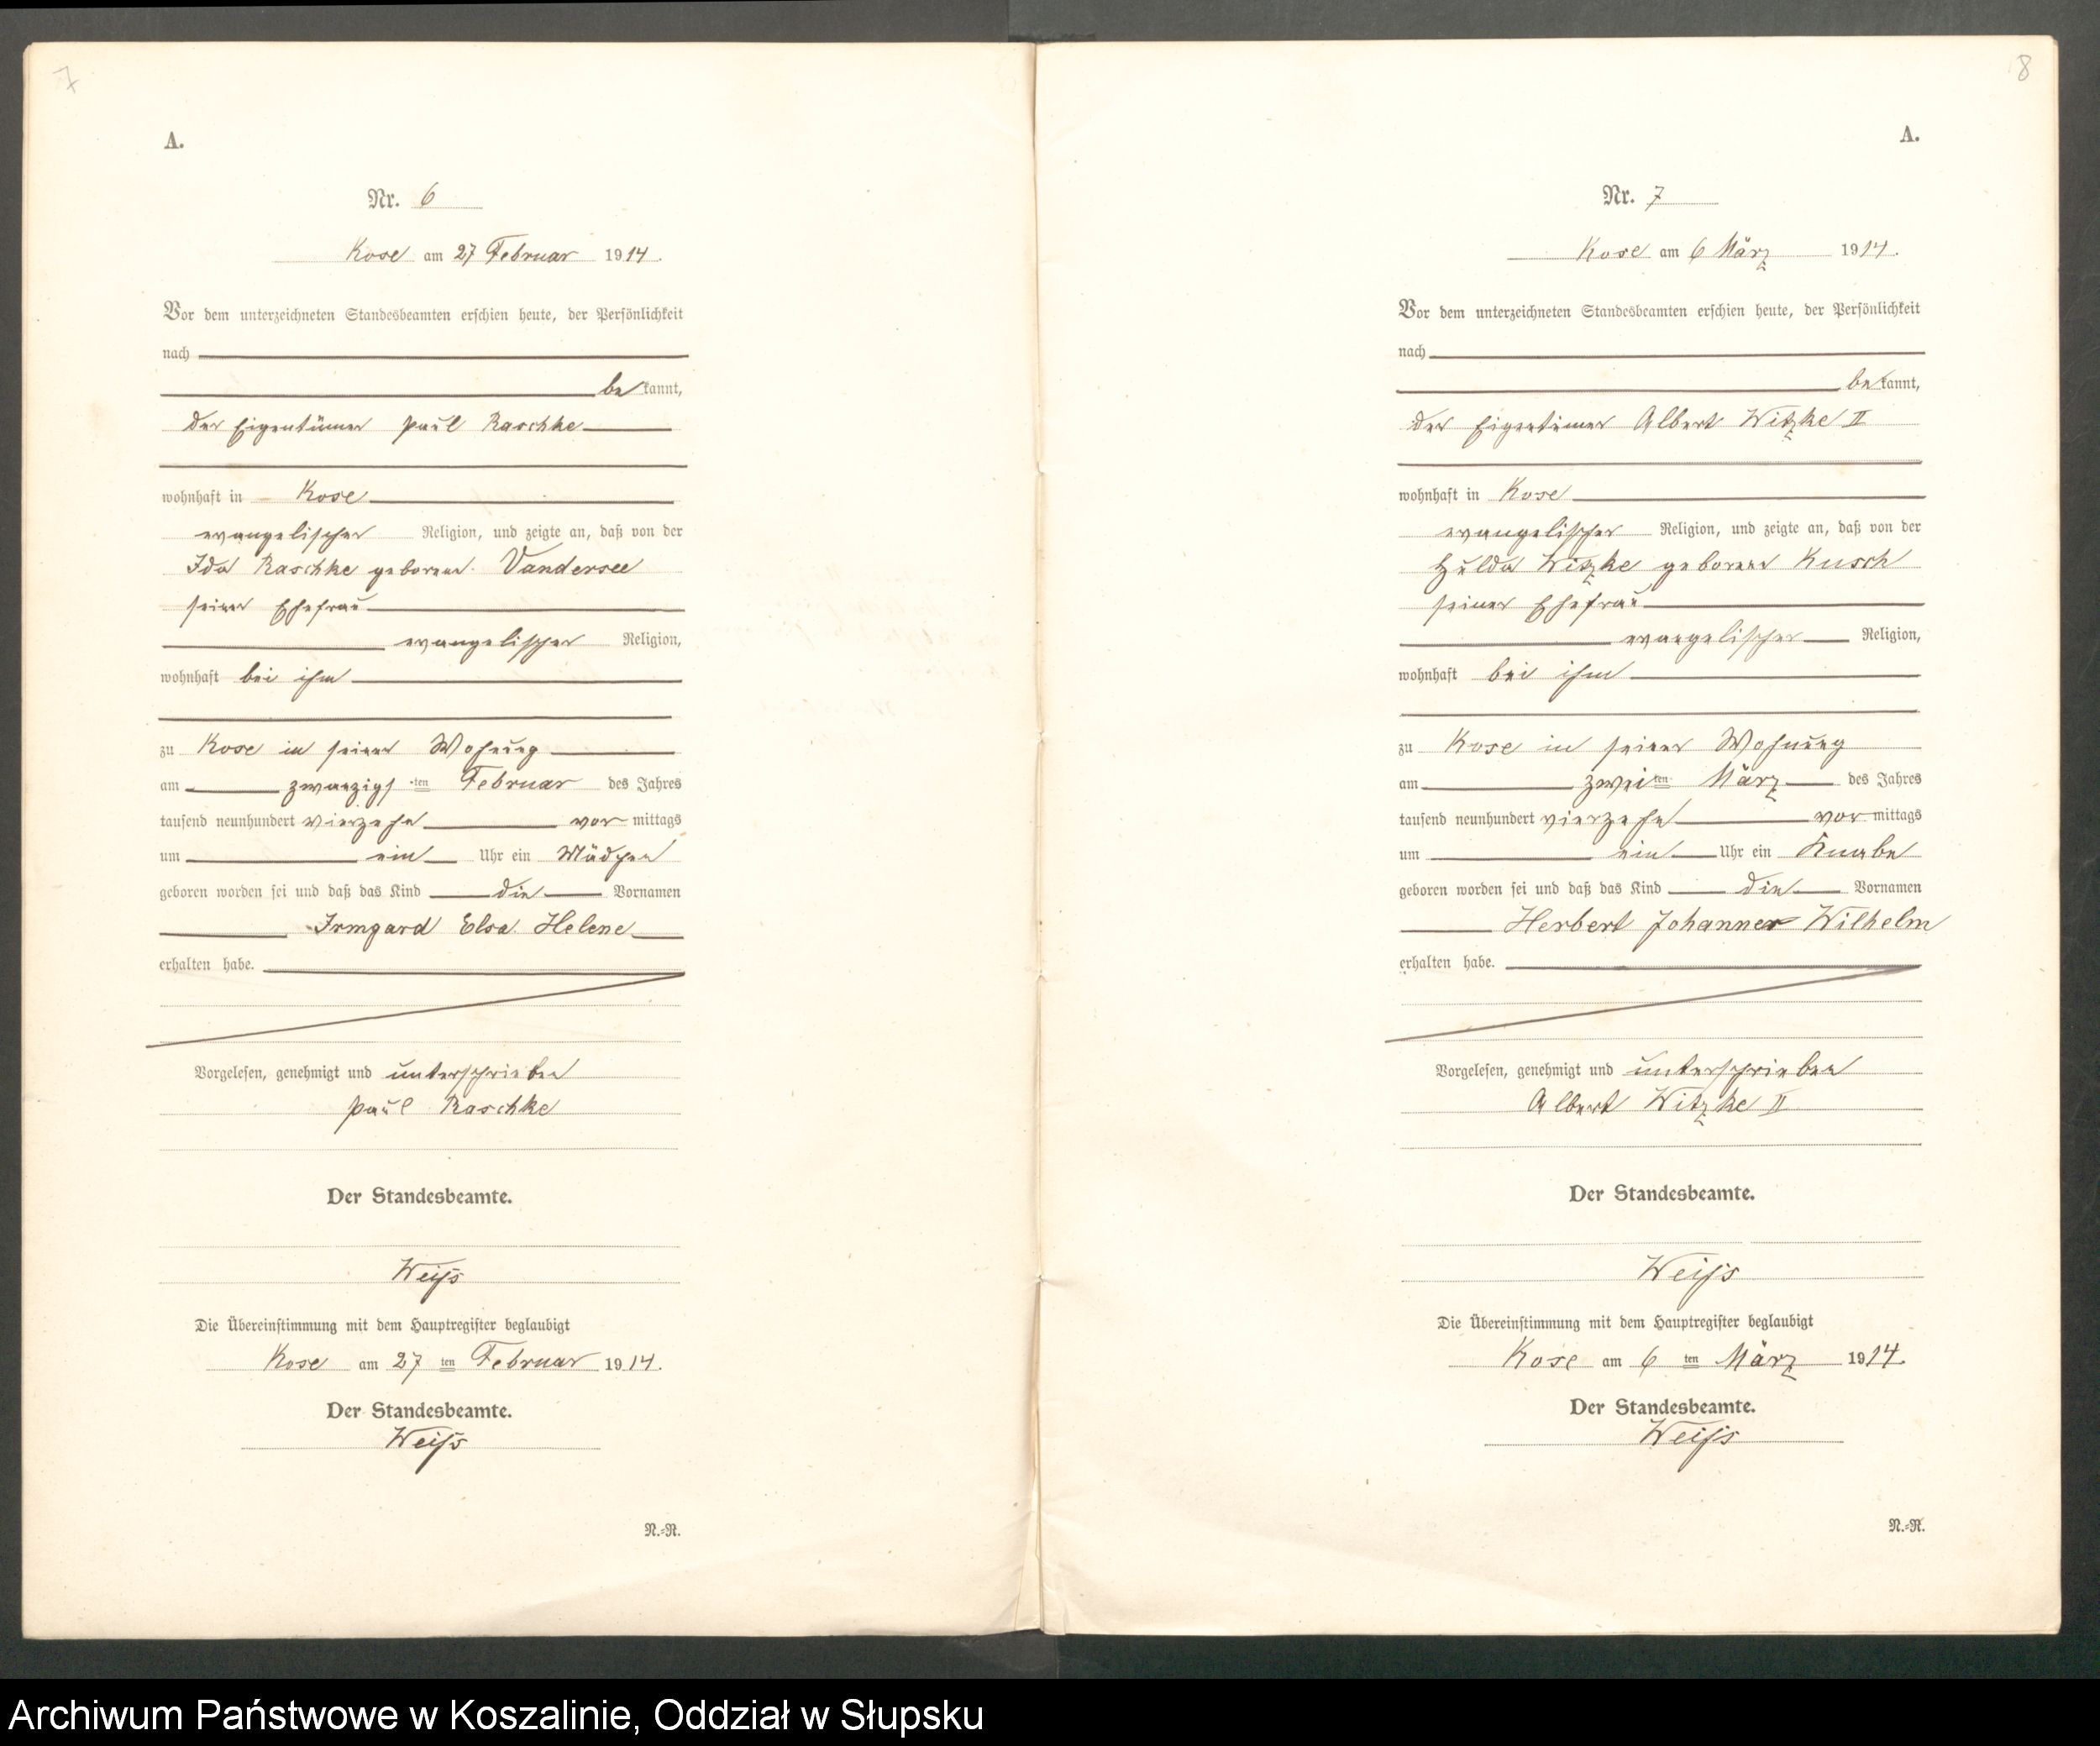 7
A.
Nr. 6
Kose am 27 Februar 1914.
Vor dem unterzeichneten Standesbeamten erschien heute, der Persönlichkeit
nach
be kannt,
der Eigentümer Paul Raschke
wohnhaft in Kose
evangelischer Religion, und zeigte an, daß von der
Ida Raschke geborene Vandersee
seiner Ehefrau
evangelischer Religion,
wohnhaft bei ihm
zu Kose in seiner Wohnung
am zwanzigsten Februar des Jahres
tausend neunhundert vierzehn vor mittags
um ein Uhr ein Mädchen
geboren worden sei und daß das Kind die Vornamen
Irmgard Elsa Helene
erhalten habe.
Vorgelesen, genehmigt und unterschrieben
Paul Raschke
Der Standesbeamte.
Weiß
Die Übereinstimmung mit dem Hauptregister beglaubigt
Kose am 27 ten Februar 1914.
Der Standesbeamte.
Weiß
N.=R.
8
A.
Nr. 7
Kose am 6 März 1914.
Vor dem unterzeichneten Standesbeamten erschien heute, der Persönlichkeit
nach
be kannt,
der Eigentümer Albert Witzke II
wohnhaft in Kose
evangelischer Religion, und zeigte an, daß von der
Hulda Witzke geborene Kusch
seiner Ehefrau
evangelischer Religion,
wohnhaft bei ihm
zu Kose in seiner Wohnung
am zweiten März des Jahres
tausend neunhundert vierzehn vor mittags
um ein Uhr ein Knabe
geboren worden sei und daß das Kind die Vornamen
Herbert Johannes Wilhelm
erhalten habe.
Vorgelesen, genehmigt und unterschrieben
Albert Witzke II
Der Standesbeamte.
Weiß
Die Übereinstimmung mit dem Hauptregister beglaubigt
Kose am 6 ten März 1914.
Der Standesbeamte.
Weiß
N.=R.
Archiwum Państwowe w Koszalinie, Oddział w Słupsku